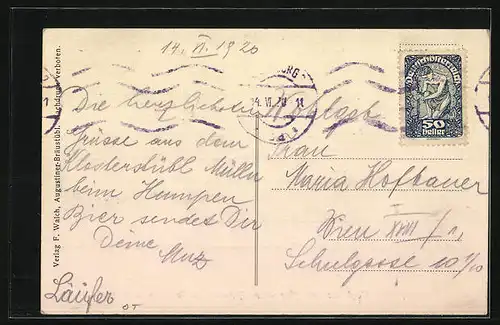 14. VI. 1920
Verlag F. Walch, Augustiner-Bräustübl. Nachdruck verboten.
14. VI. 20 11
Deutschösterreich
50
Heller
Die herzlichsten
Grüsse aus dem
Klosterstübl Mülln
beim Humpen
Bier sendet Dir
Deine
Läufer
OT
Frau
Maria Hofbauer
Wien XVIII/1,
Schulgasse 10